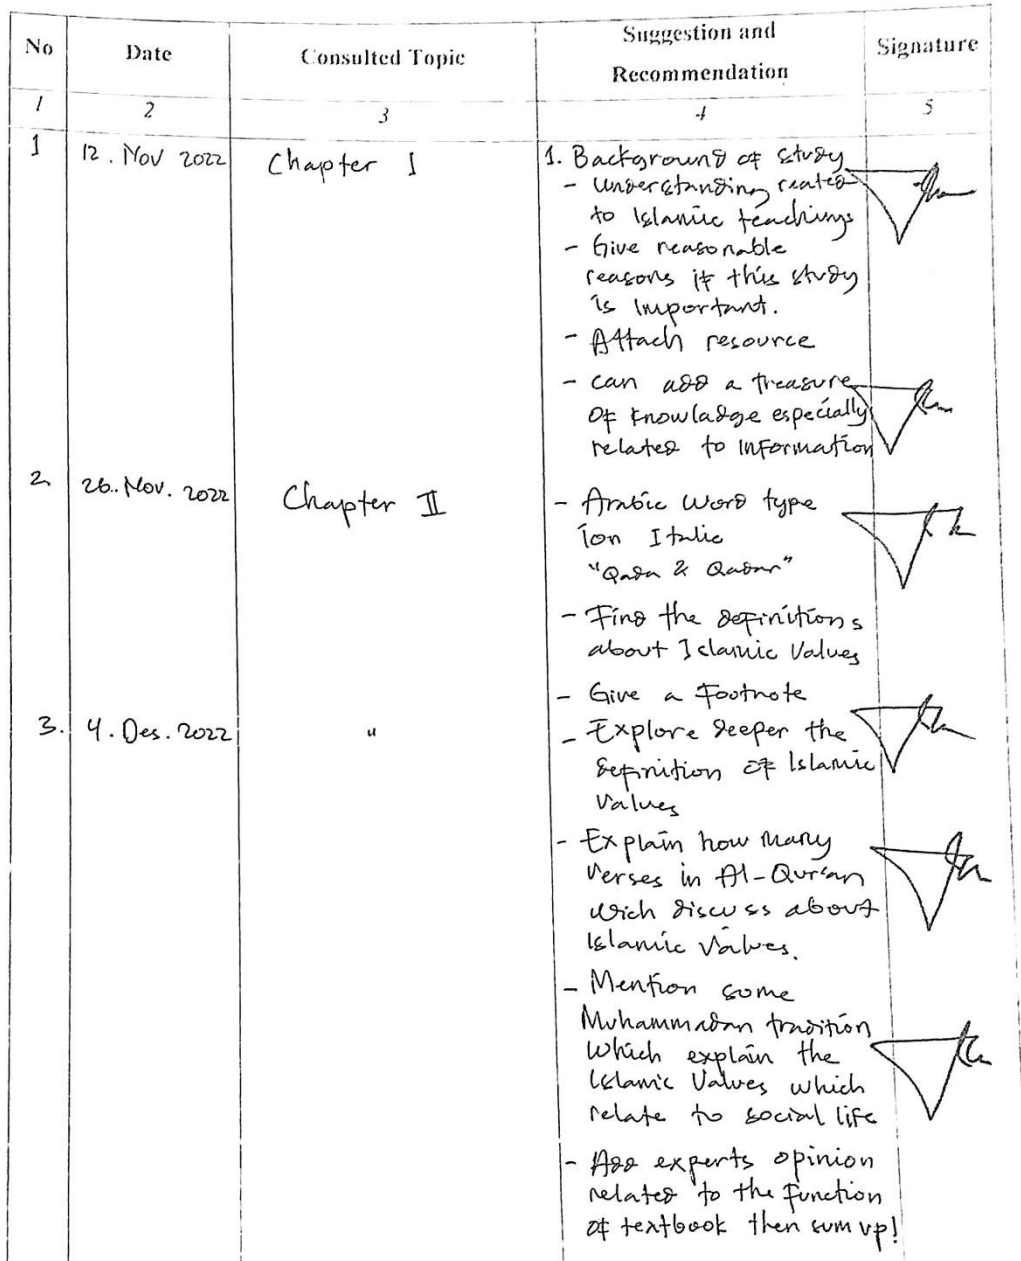 No Date Consulted Topic Suggestion and Recommendation Signature
1 2 3 4 5
1 12. Nov 2022 Chapter I 1. Background of study
- Understanding related
to Islamic teachings
- Give reasonable
reasons if this study
is important.
- Attach resource
- can add a treasure
of knowladge especially
related to information
2. 26. Nov. 2022 Chapter II - Arabic word type
ion Italic
"Qada & Qadar"
- Find the definitions
about Islamic Values
- Give a Footnote
3. 4. Des. 2022 " - Explore deeper the
definition of Islamic
Values
- Explain how many
verses in Al-Qur'an
wich discuss about
Islamic Values.
- Mention some
Muhammadan tradition
which explain the
Islamic Values which
relate to social life
- Add experts opinion
related to the function
of textbook then sum up!